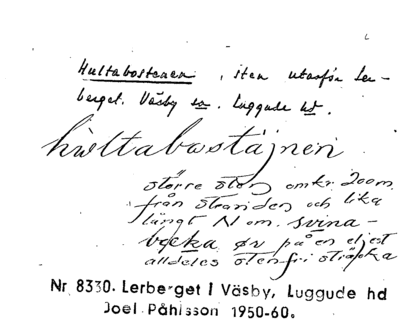 Hultabostenen, sten utanför Ler-
berget. Väsby sn. Luggude hd.
hùltabostäjnen
större sten omkr. 200 m
från stranden och lika
långt N om. svina-
bäcka øv på en eljest
alldeles stenfri sträcka
Nr 8330. Lerberget i Väsby, Luggude hd
Joel Påhlsson 1950-60.